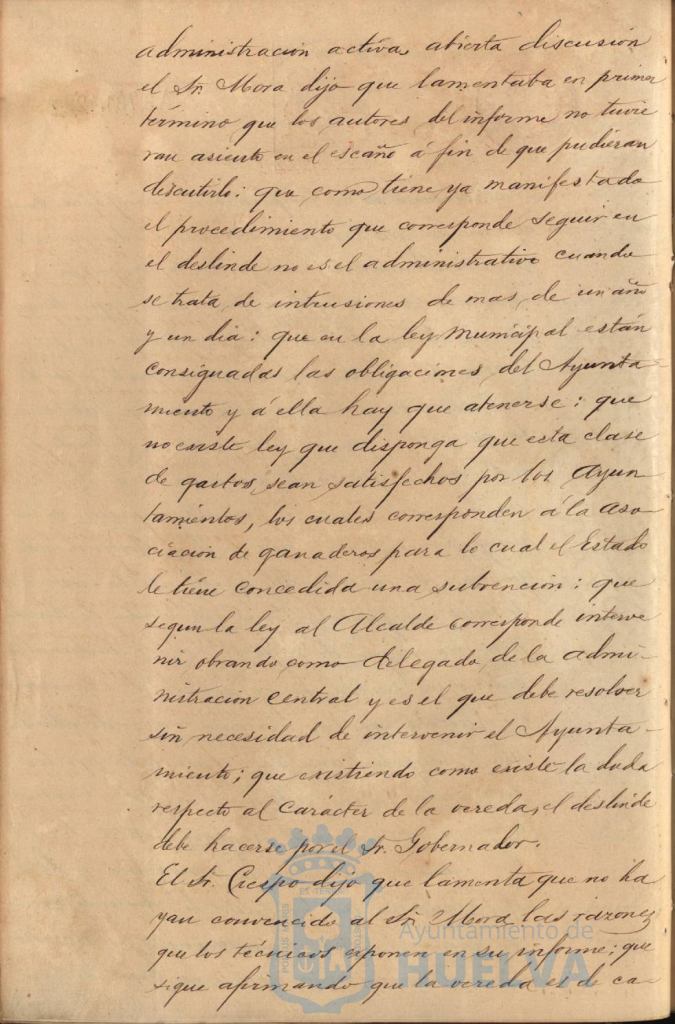 administracion activa, abierta discusión
el Sr. Mora dijo que lamentaba en primer
término que los autores del informe no tuvie
ran asiento en el escaño á fin de que pudieran
discutirlo: que como tiene ya manifestado
el procedimiento que corresponde seguir en
el deslinde no es el administrativo cuando
se trata de intrusiones de mas de un año
y un dia: que en la ley municipal están
consignadas las obligaciones del Ayunta-
miento y á ella hay que atenerse: que
no existe ley que disponga que esta clase
de gastos sean satisfechos por los Ayun
tamientos, los cuales corresponden á la aso
ciacion de ganaderos para lo cual el Estado
le tiene concedida una subvencion: que
segun la ley al Alcalde corresponde interve
nir obrando como delegado de la admi-
nistracion central y es el que debe resolver
sin necesidad de intervenir el Ayunta-
miento; que existiendo como existe la duda
respecto al carácter de la vereda, el deslinde
debe hacerse por el Sr. Gobernador.
El Sr. Crespo dijo que lamenta que no ha
yan convencido al Sr. Mora las razones
que los técnicos exponen en su informe; que
sigue afirmando que la vereda es de ca-
Ayuntamiento de
HUELVA